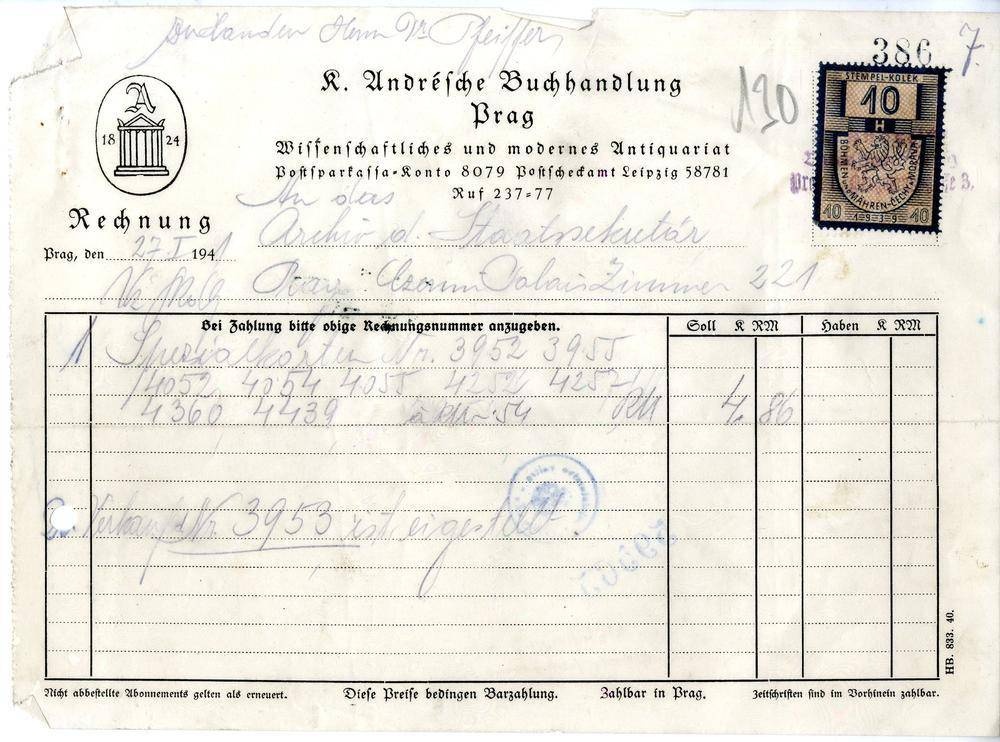 Herrn Dr. Pfeiffer
386
7.
130
STEMPEL-KOLEK
10
H
BÖHMEN u. MÄHREN-ČECHY a MORAVA
40 1939 40
A
18 24
K. Andrésche Buchhandlung
Prag
Wissenschaftliches und modernes Antiquariat
Postsparkassa-Konto 8079 Postscheckamt Leipzig 58781
Ruf 237-77
Rechnung
An das
Archiv d. Staatssekretär
Prag, den 27.I. 1941
Czernin Palais Zimmer 221
Bei Zahlung bitte obige Rechnungsnummer anzugeben.
Soll K RM
Haben K RM
1 Spezialkarten Nr. 3952 3955
4052 4054 4055 4252 4257
4360 4439 à 54 RM 4 86
Nr. 3953 ist
HB. 833. 40.
Nicht abbestellte Abonnements gelten als erneuert. Diese Preise bedingen Barzahlung. Zahlbar in Prag. Zeitschriften sind im Vorhinein zahlbar.